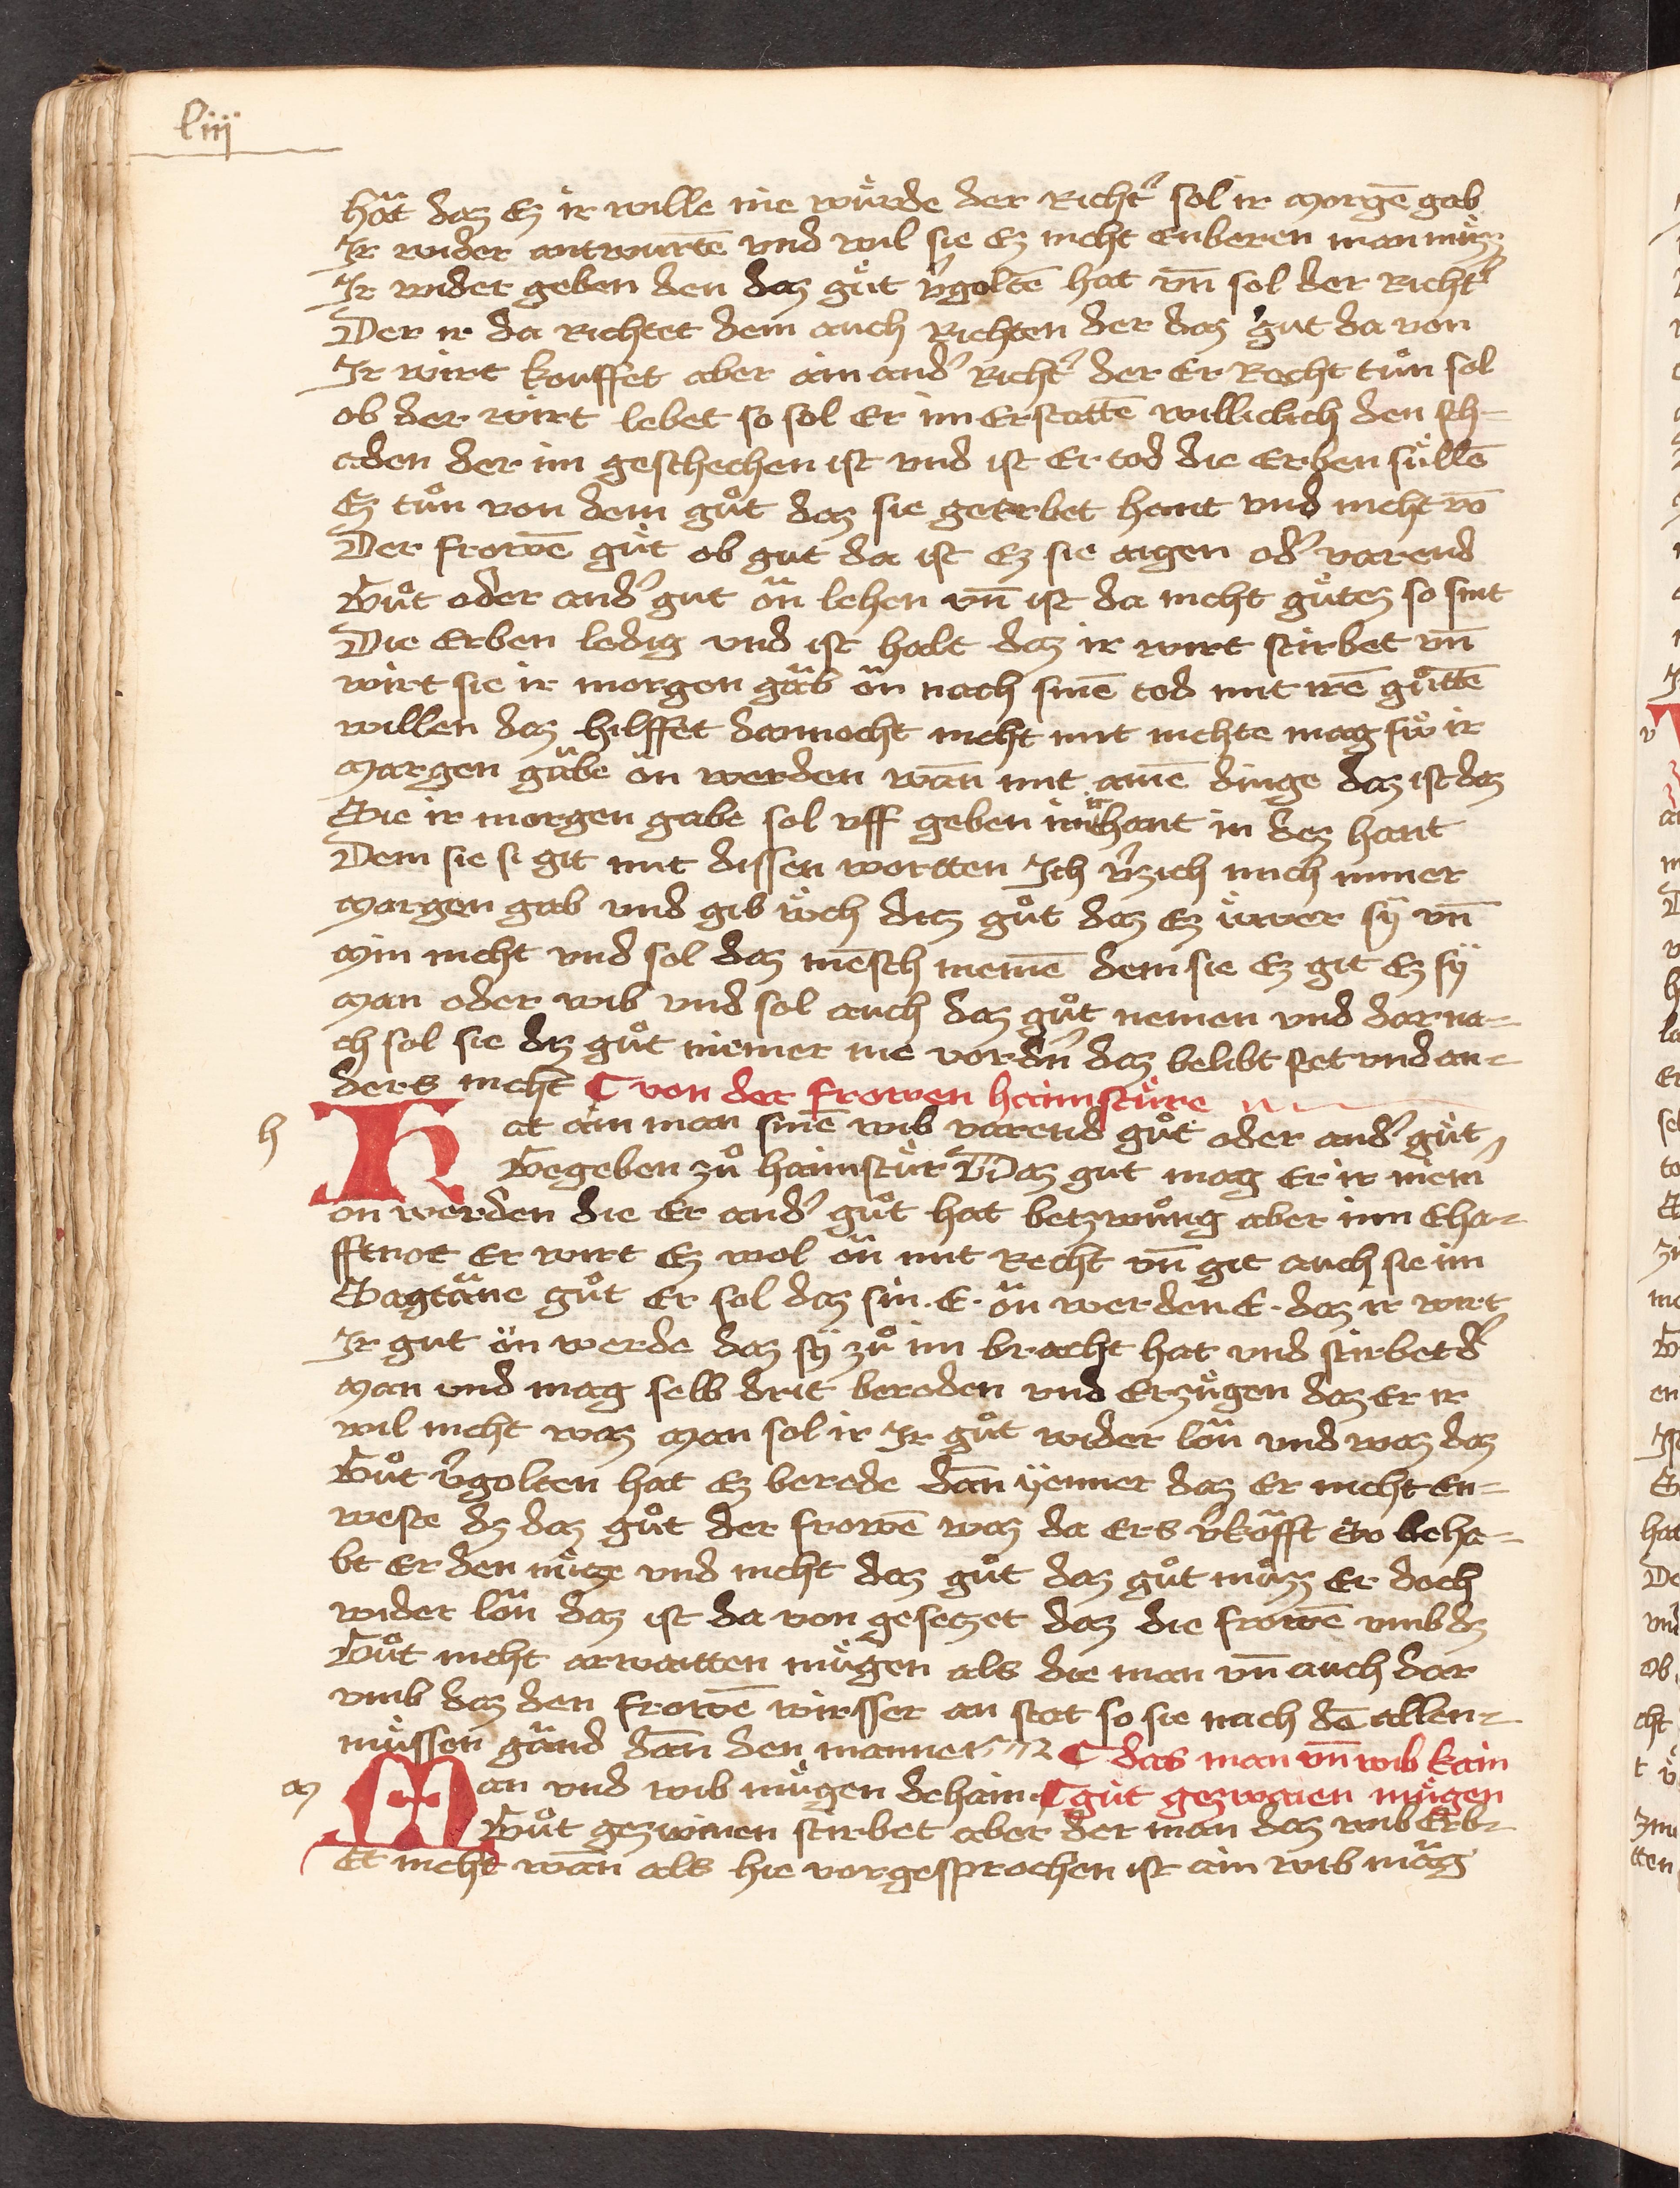 liij
hät daz Ez ir wille nie wu̍rde der Richt͛ sol ir morgē gab
Ir wider antwurtē vnd wil sie Ez nicht enberen man mu̍zz
Ir wider geben den daz gu̍t v͛goltē hat vn̄ sol der Richt͛
Der ir da Richtet dem auch Richten der daz gut da von
Ir wirt kouffet aber ain and͛ Richt͛ der Er Recht tůn sol
ob der wirt lebet so sol Er im Erstattē williclich den sch-
aden der im geschechen ist vnd ist Er tod die Erben su̍llē
Ez tůn von dem gůt daz sie geerbet hant vnd nicht vō
Der frowē gu̍t ob gut da ist Ez sie aigen od͛ varend
Gůt oder and͛ gut ön lehen vn̄ ist da nicht gůtez so sint
Die Erben ledig vnd ist halt daz ir wirt stirbet vn̄
wirt sie ir morgen gäb ön nach sinē tod mit irē gůttē
willen daz hilffet dannocht nicht mit nichte mag sie ir
Margen gäbe ön werden wān mit ainē dinge daz ist daz
Sie ir morgen gabe sol vff geben in ir hant in dez hant
Dem sie si git mit dissen wortten Ich v͛zich mich miner
Margen gab vnd gib u̍ch ditz gůt daz Ez u̍wer sÿ vn̄
Min nicht vnd sol daz mēsch nemē dem sie Ez git Ez sÿ
Man oder wib vnd sol auch daz gůt nemen vnd dar na-
ch sol sie dz gůt niemer me vordn͛ daz belibt stet vnd an-
ders nicht ¶ von der frowen haimstu̍re
h
Hat ain man sinē wib varend gůt oder and͛ gu̍t
Gegeben zů haimstu̍r Daz gut mag Er ir niem
on werden die Er and͛ gůt hat betzwůng aber inn Eha-
fftnot Er wirt Ez wol ön mit Recht vn̄ git auch sie im
Sagtäne gůt Er sol daz sin .E. ön werden .E. daz ir wirt
Ir gut ön werde daz sÿ zů im bracht hat vnd stirbet d͛
Man vnd mag selb drit bereden vnd Erzu̍gen daz Er ir
wil nicht waz Man sol ir Ir gůt wider lön vnd waz daz
Gůt v͛golten hat Ez berede dān ÿenner daz Er nicht En-
weste dz daz gůt der frowē waz da Ers v͛köfft So beha-
bt Er den nu̍tze vnd nicht daz gůt daz gůt můzz Er doch
wider lön daz ist da von gesetzet daz die frowē vmb dz
Gůt nicht arwaitten mu̍gen als die man vn̄ auch dar
vmb daz den frowē wirsser an stat so sie nach dē allen
mu̍ssen gänd dān den mannen ¶ das man vn̄ wib kain
m
Man vnd wib mu̍gen dehain ¶ gu̍t gezwaien mu̍gen
Gůt gezwinen stirbet aber der man daz wib Erb-
Et nicht wān als hie vorgesprochen ist ain wib mäg